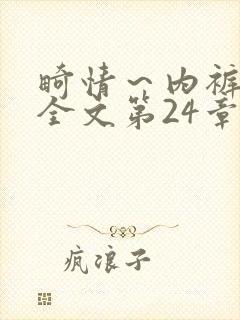 畸情一内裤
全文第24章
疯浪子